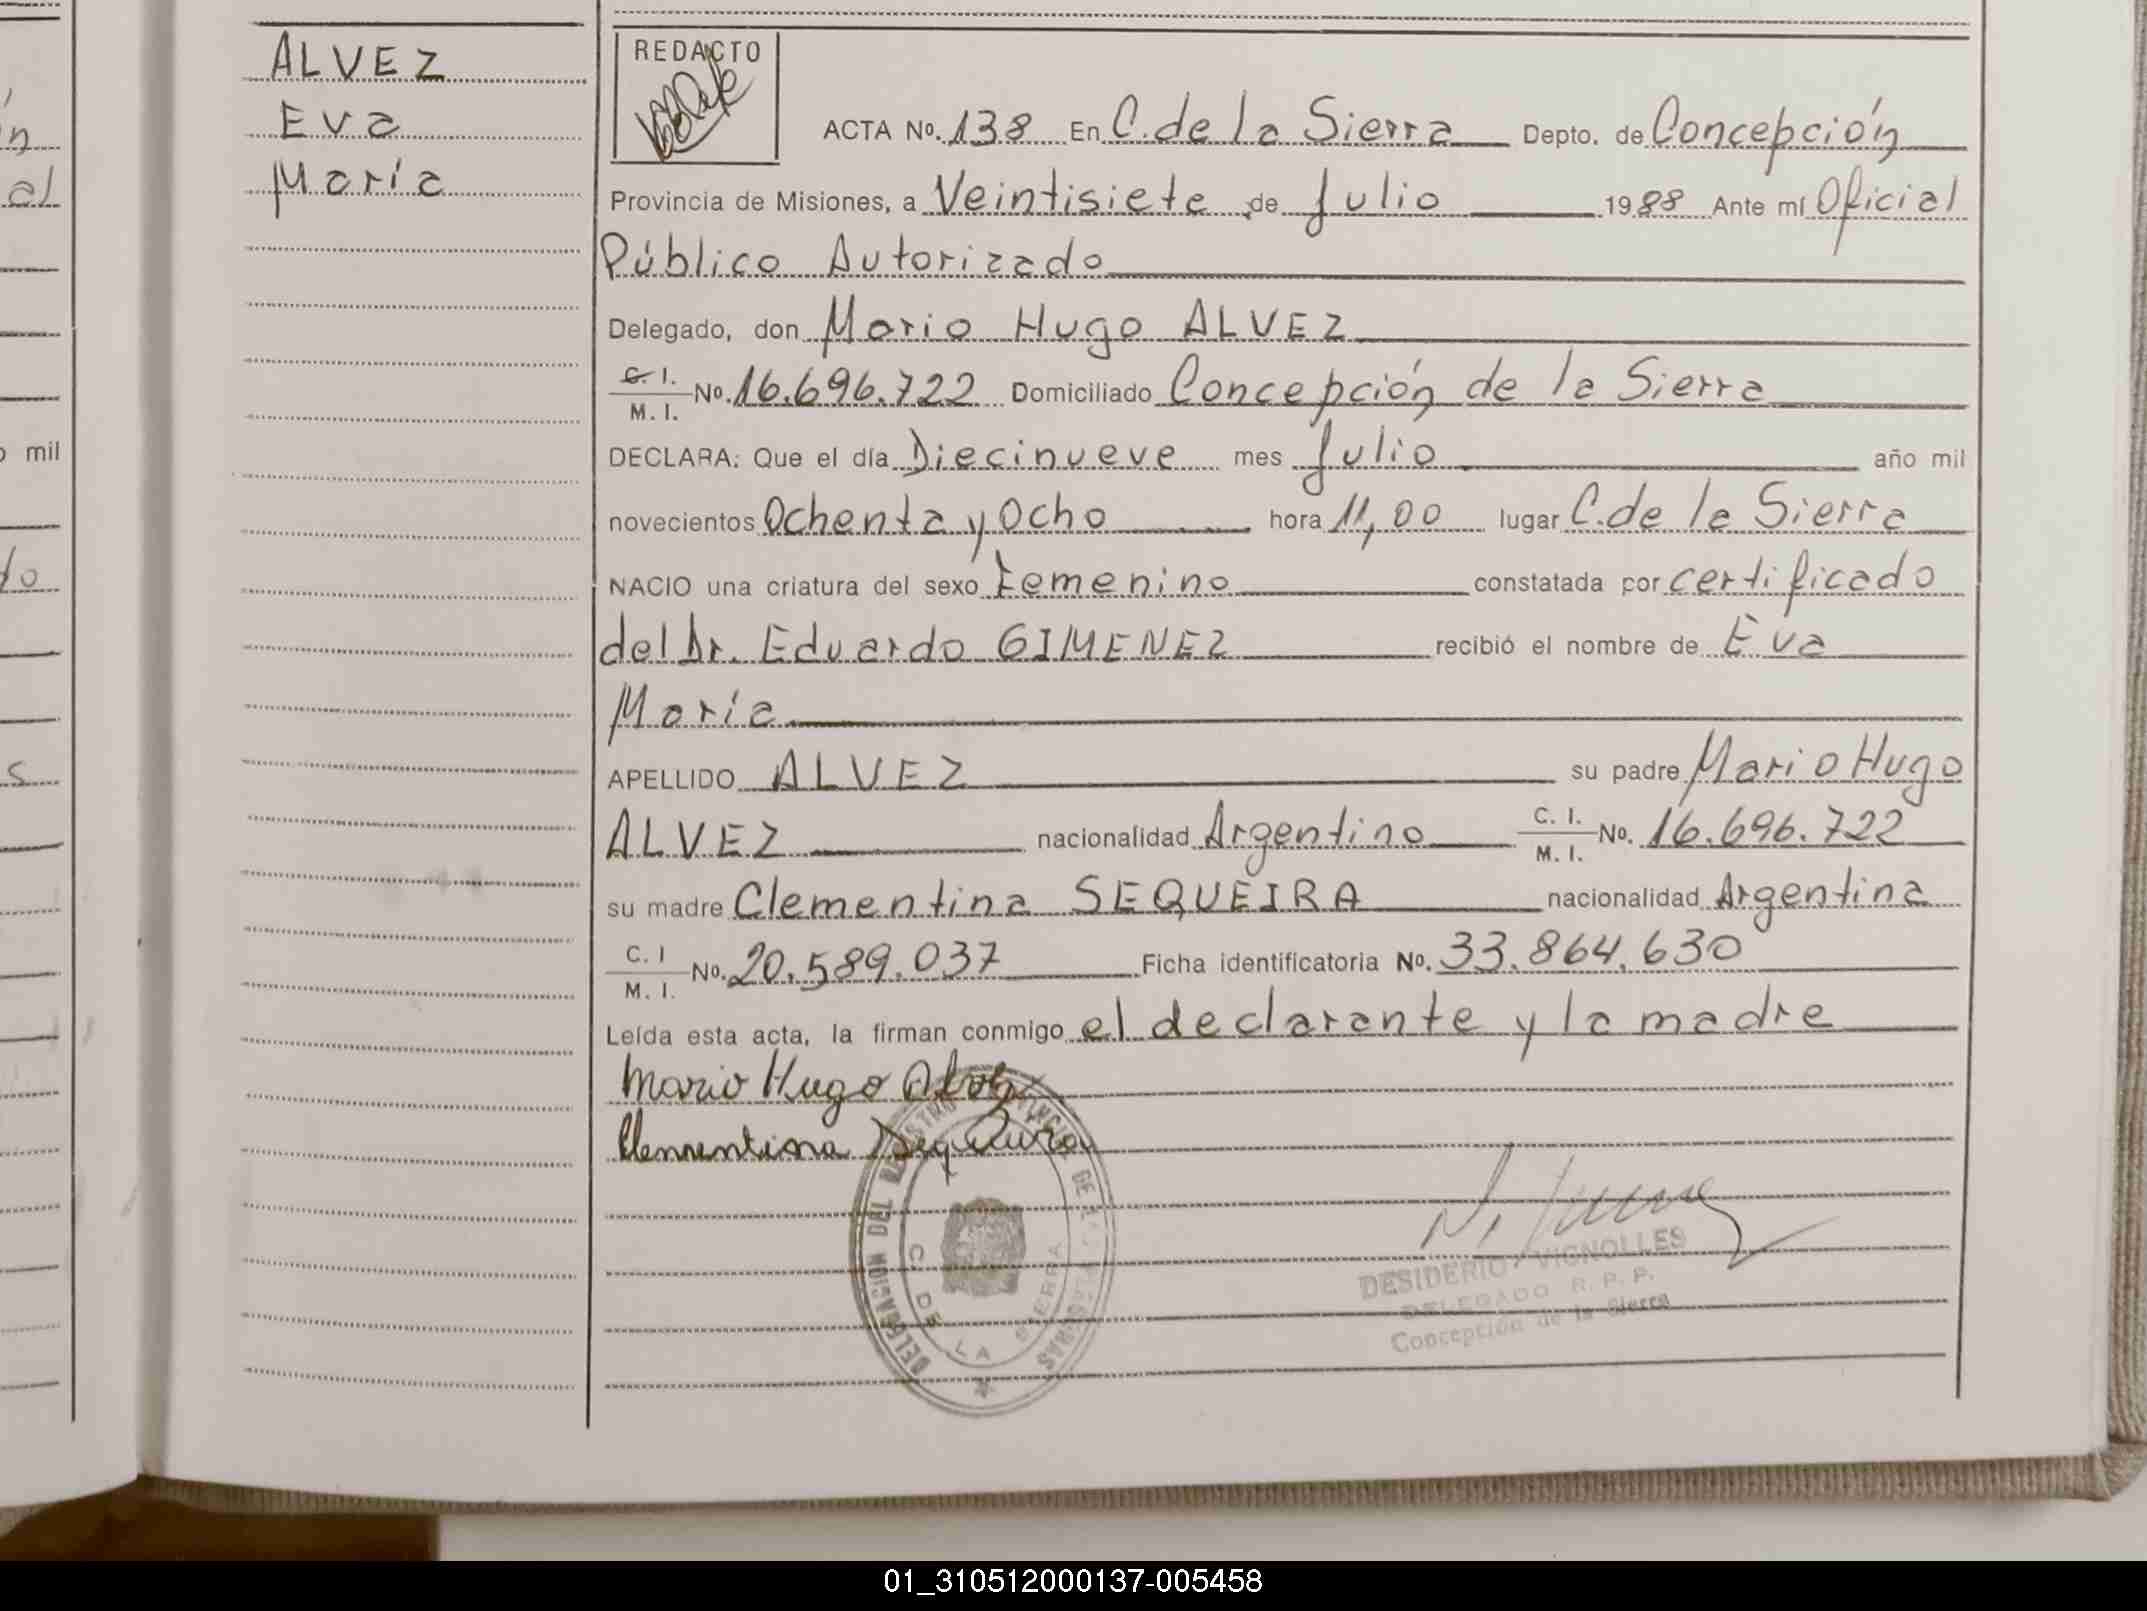 ALVEZ
Eva
María
REDACTO
ACTA No. 138 En C. de la Sierra Depto. de Concepción
Provincia de Misiones, a Veintisiete de Julio 1988 Ante mí Oficial
Público Autorizado
Delegado, don Mario Hugo ALVEZ
C. I. M. I. No. 16.696.722 Domiciliado Concepción de la Sierra
DECLARA: Que el día Diecinueve mes Julio año mil
novecientos Ochenta y Ocho hora 11,00 lugar C. de la Sierra
NACIO una criatura del sexo Femenino constatada por certificado
del Dr. Eduardo GIMENEZ recibió el nombre de Eva
María
APELLIDO ALVEZ su padre Mario Hugo
ALVEZ nacionalidad Argentino C. I. M. I. No. 16.696.722
su madre Clementina SEQUEIRA nacionalidad Argentina
C. I M. I. No. 20.589.037 Ficha identificatoria No. 33.864.630
Leída esta acta, la firman conmigo el declarante y la madre
Mario Hugo Alvez
Clementina Sequeira
DELEGACION DEL REGISTRO PROVINCIAL DE LAS PERSONAS
C. DE LA SIERRA
DESIDERIO VIGNOLLES
DELEGADO R. P. P.
Concepción de la Sierra
mil
01_310512000137-005458